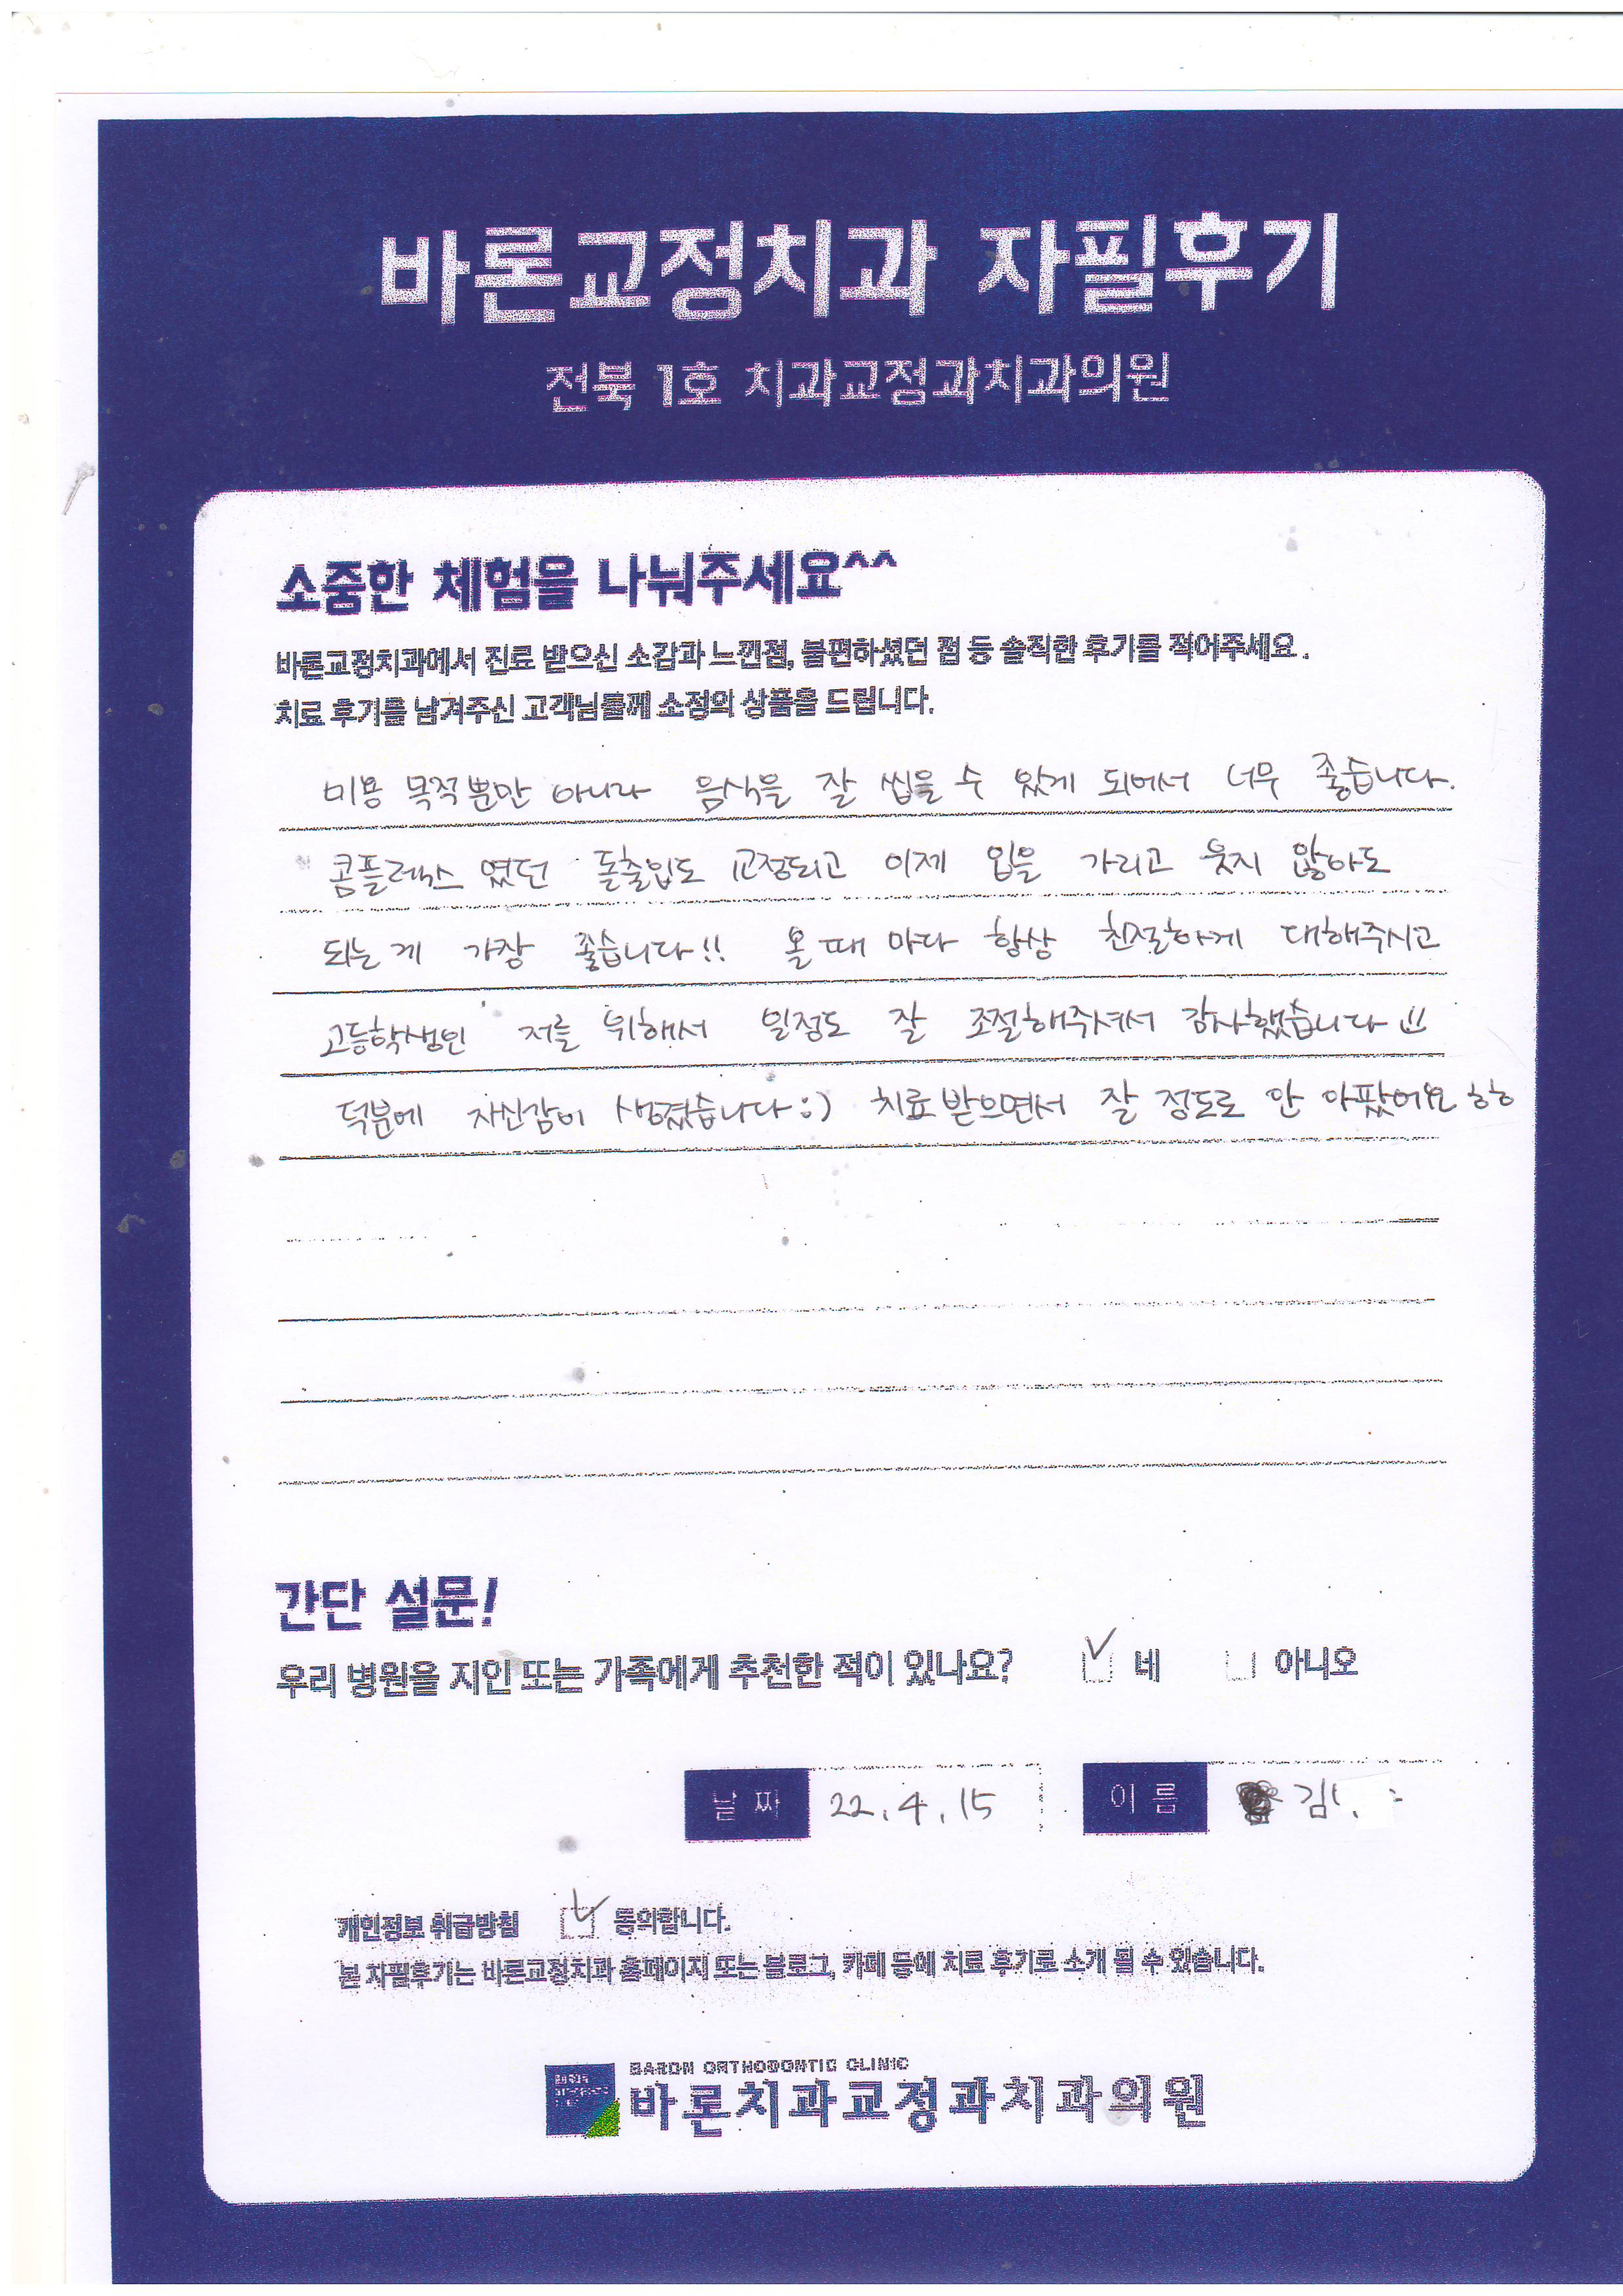 바론교정치과 자필후기
전북 1호 치과교정과치과의원
소중한 체험을 나눠주세요^^
바론교정치과에서 진료 받으신 소감과 느낀점, 불편하셨던 점 등 솔직한 후기를 적어주세요.
치료 후기를 남겨주신 고객님들께 소정의 상품을 드립니다.
미용 목적뿐만 아니라 음식을 잘 씹을 수 있게 되어서 너무 좋습니다.
콤플렉스 였던 돌출입도 교정되고 이제 입을 가리고 웃지 않아도
되는게 가장 좋습니다!! 올 때 마다 항상 친절하게 대해주시고
고등학생인 저를 위해서 일정도 잘 조절해주셔서 감사했습니다
덕분에 자신감이 생겼습니다 :) 치료 받으면서 잘 정도로 안 아팠어요 ㅎㅎ
간단 설문!
우리 병원을 지인 또는 가족에게 추천한 적이 있나요? 네 아니오
날 짜 22.4.15 이 름 김
개인정보 취급방침 동의합니다.
본 자필후기는 바론교정치과 홈페이지 또는 블로그, 카페 등에 치료 후기로 소개 될 수 있습니다.
BARON ORTHODONTIC CLINIC
바론치과교정과치과의원